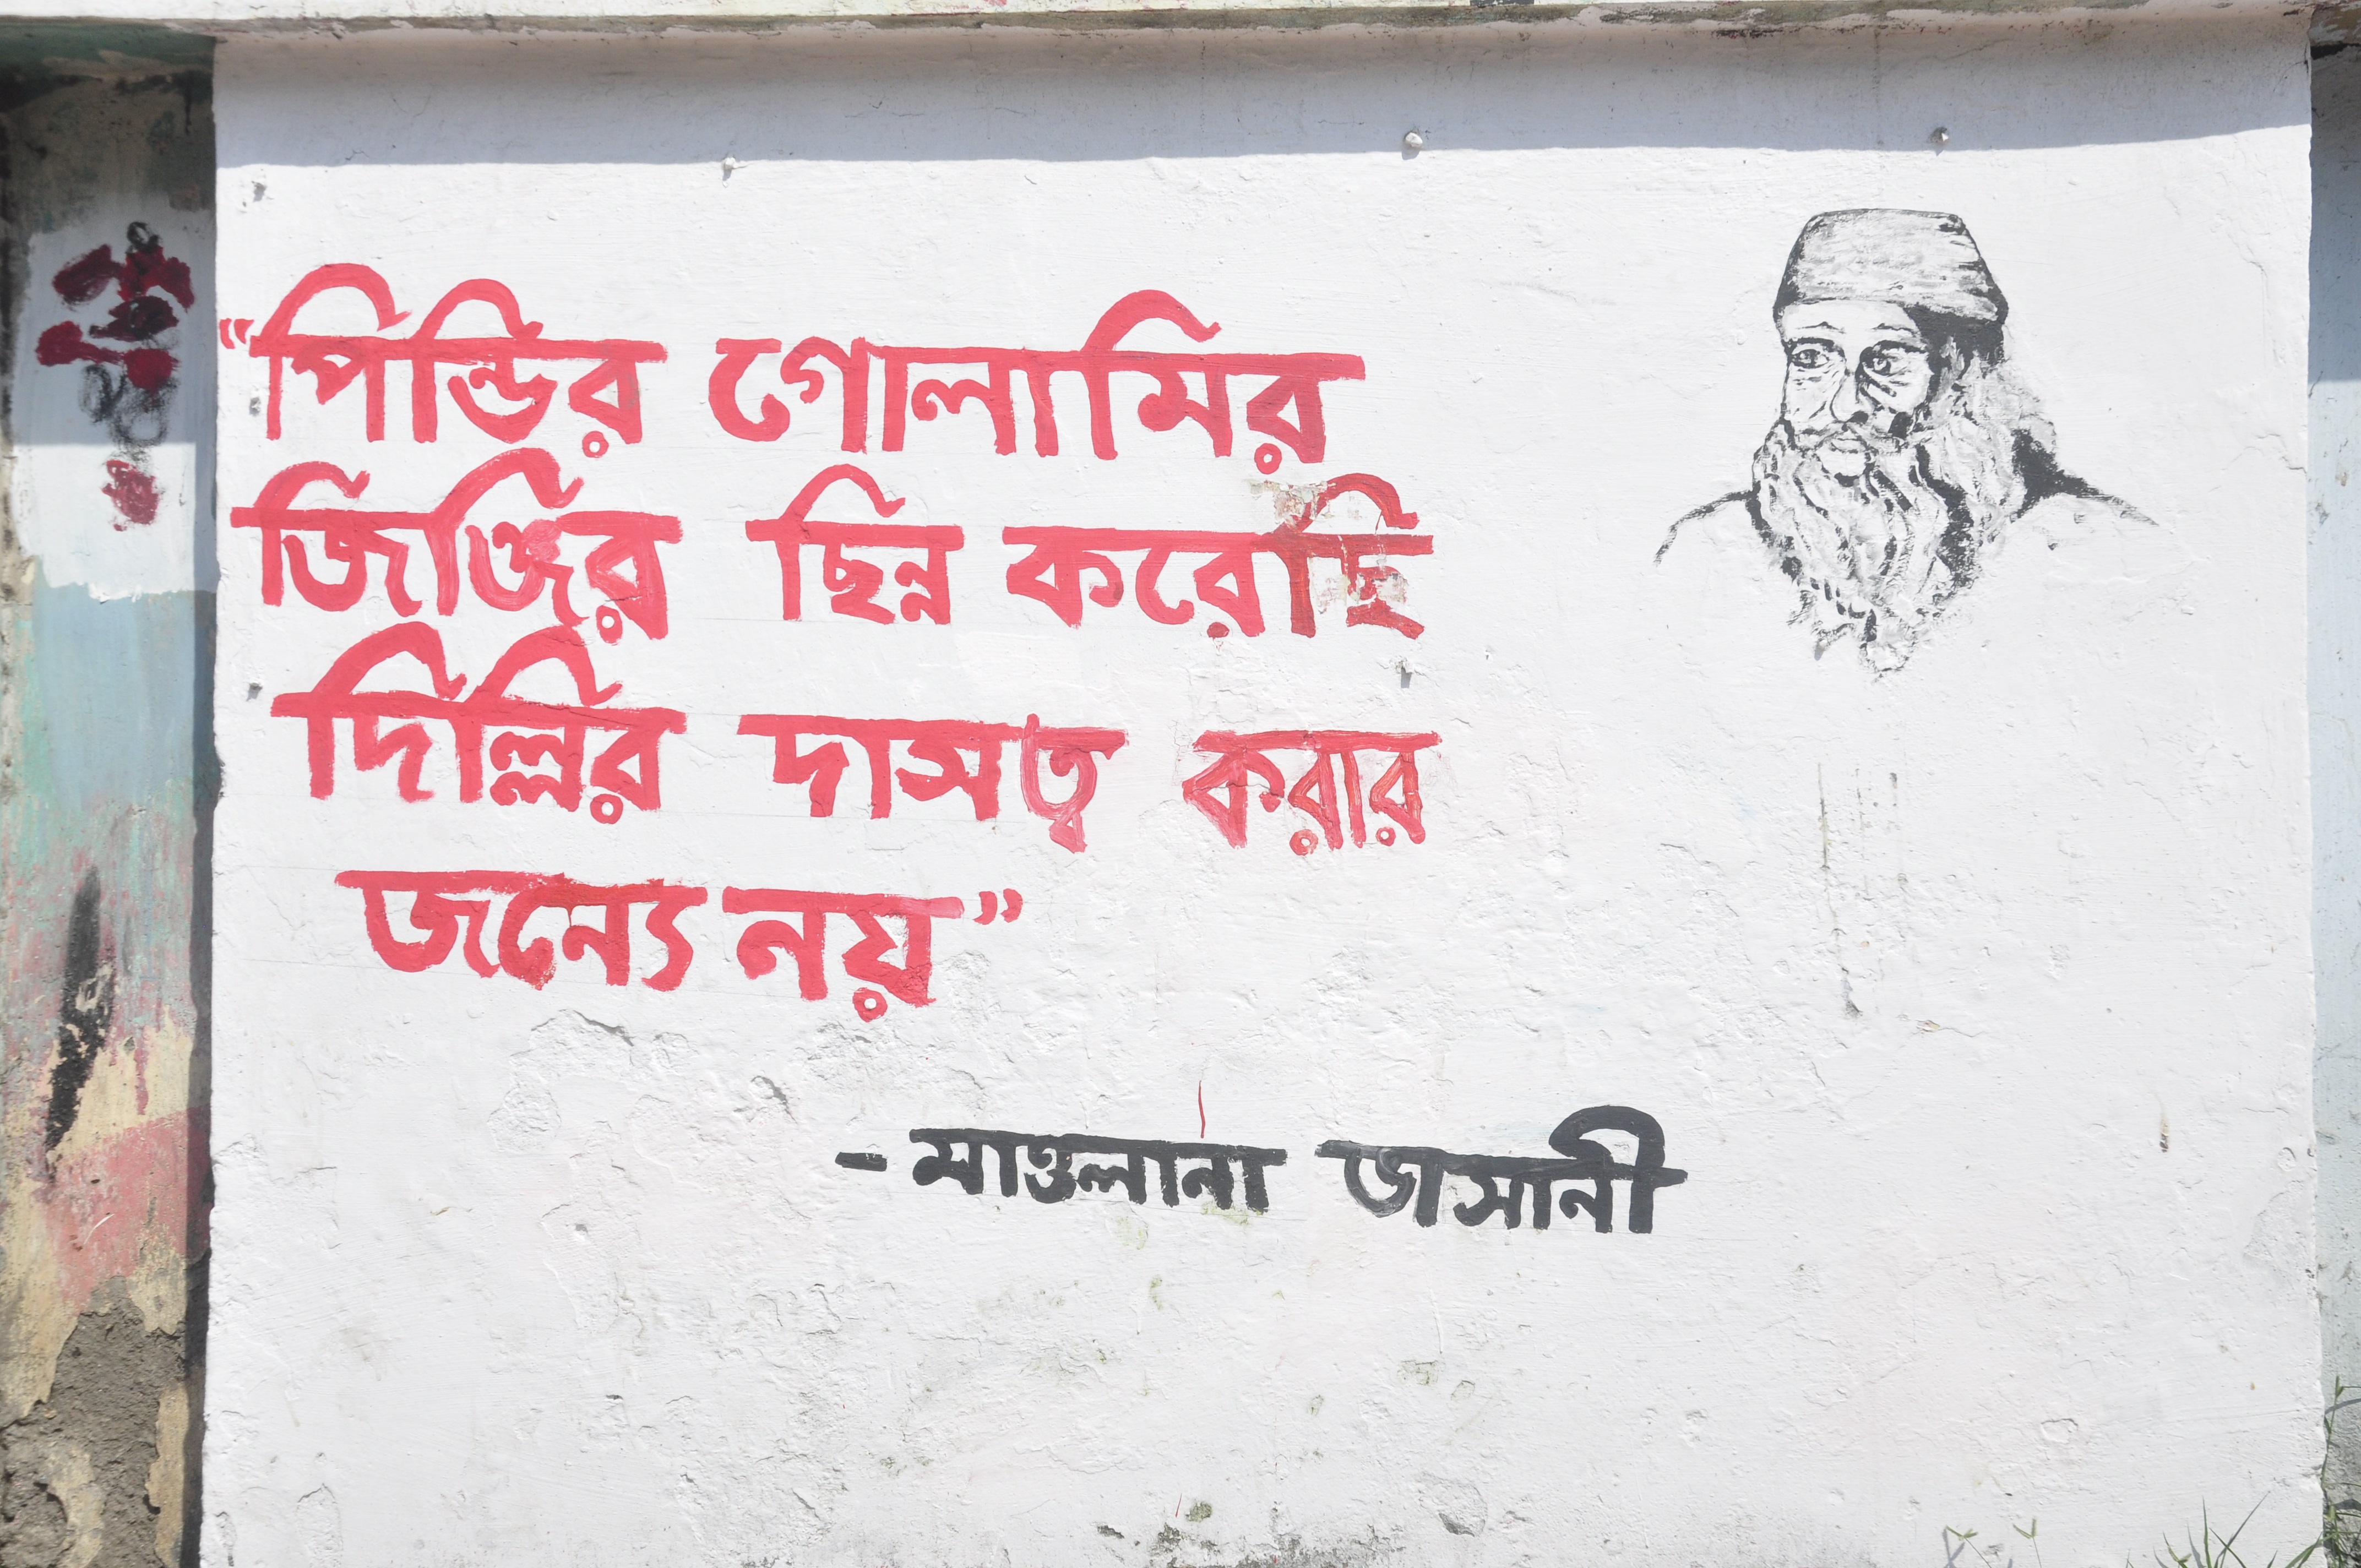 “পিন্ডির গোলামির
জিঞ্জির ছিন্ন করেছি
দিল্লির দাসত্ব করার
জন্যে নয়”
- মাওলানা ভাসানী